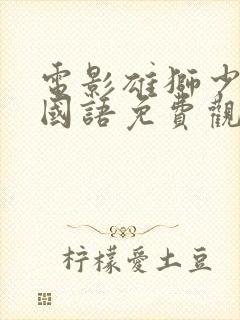 電影雄獅少
國語免費觀
柠檬愛土豆